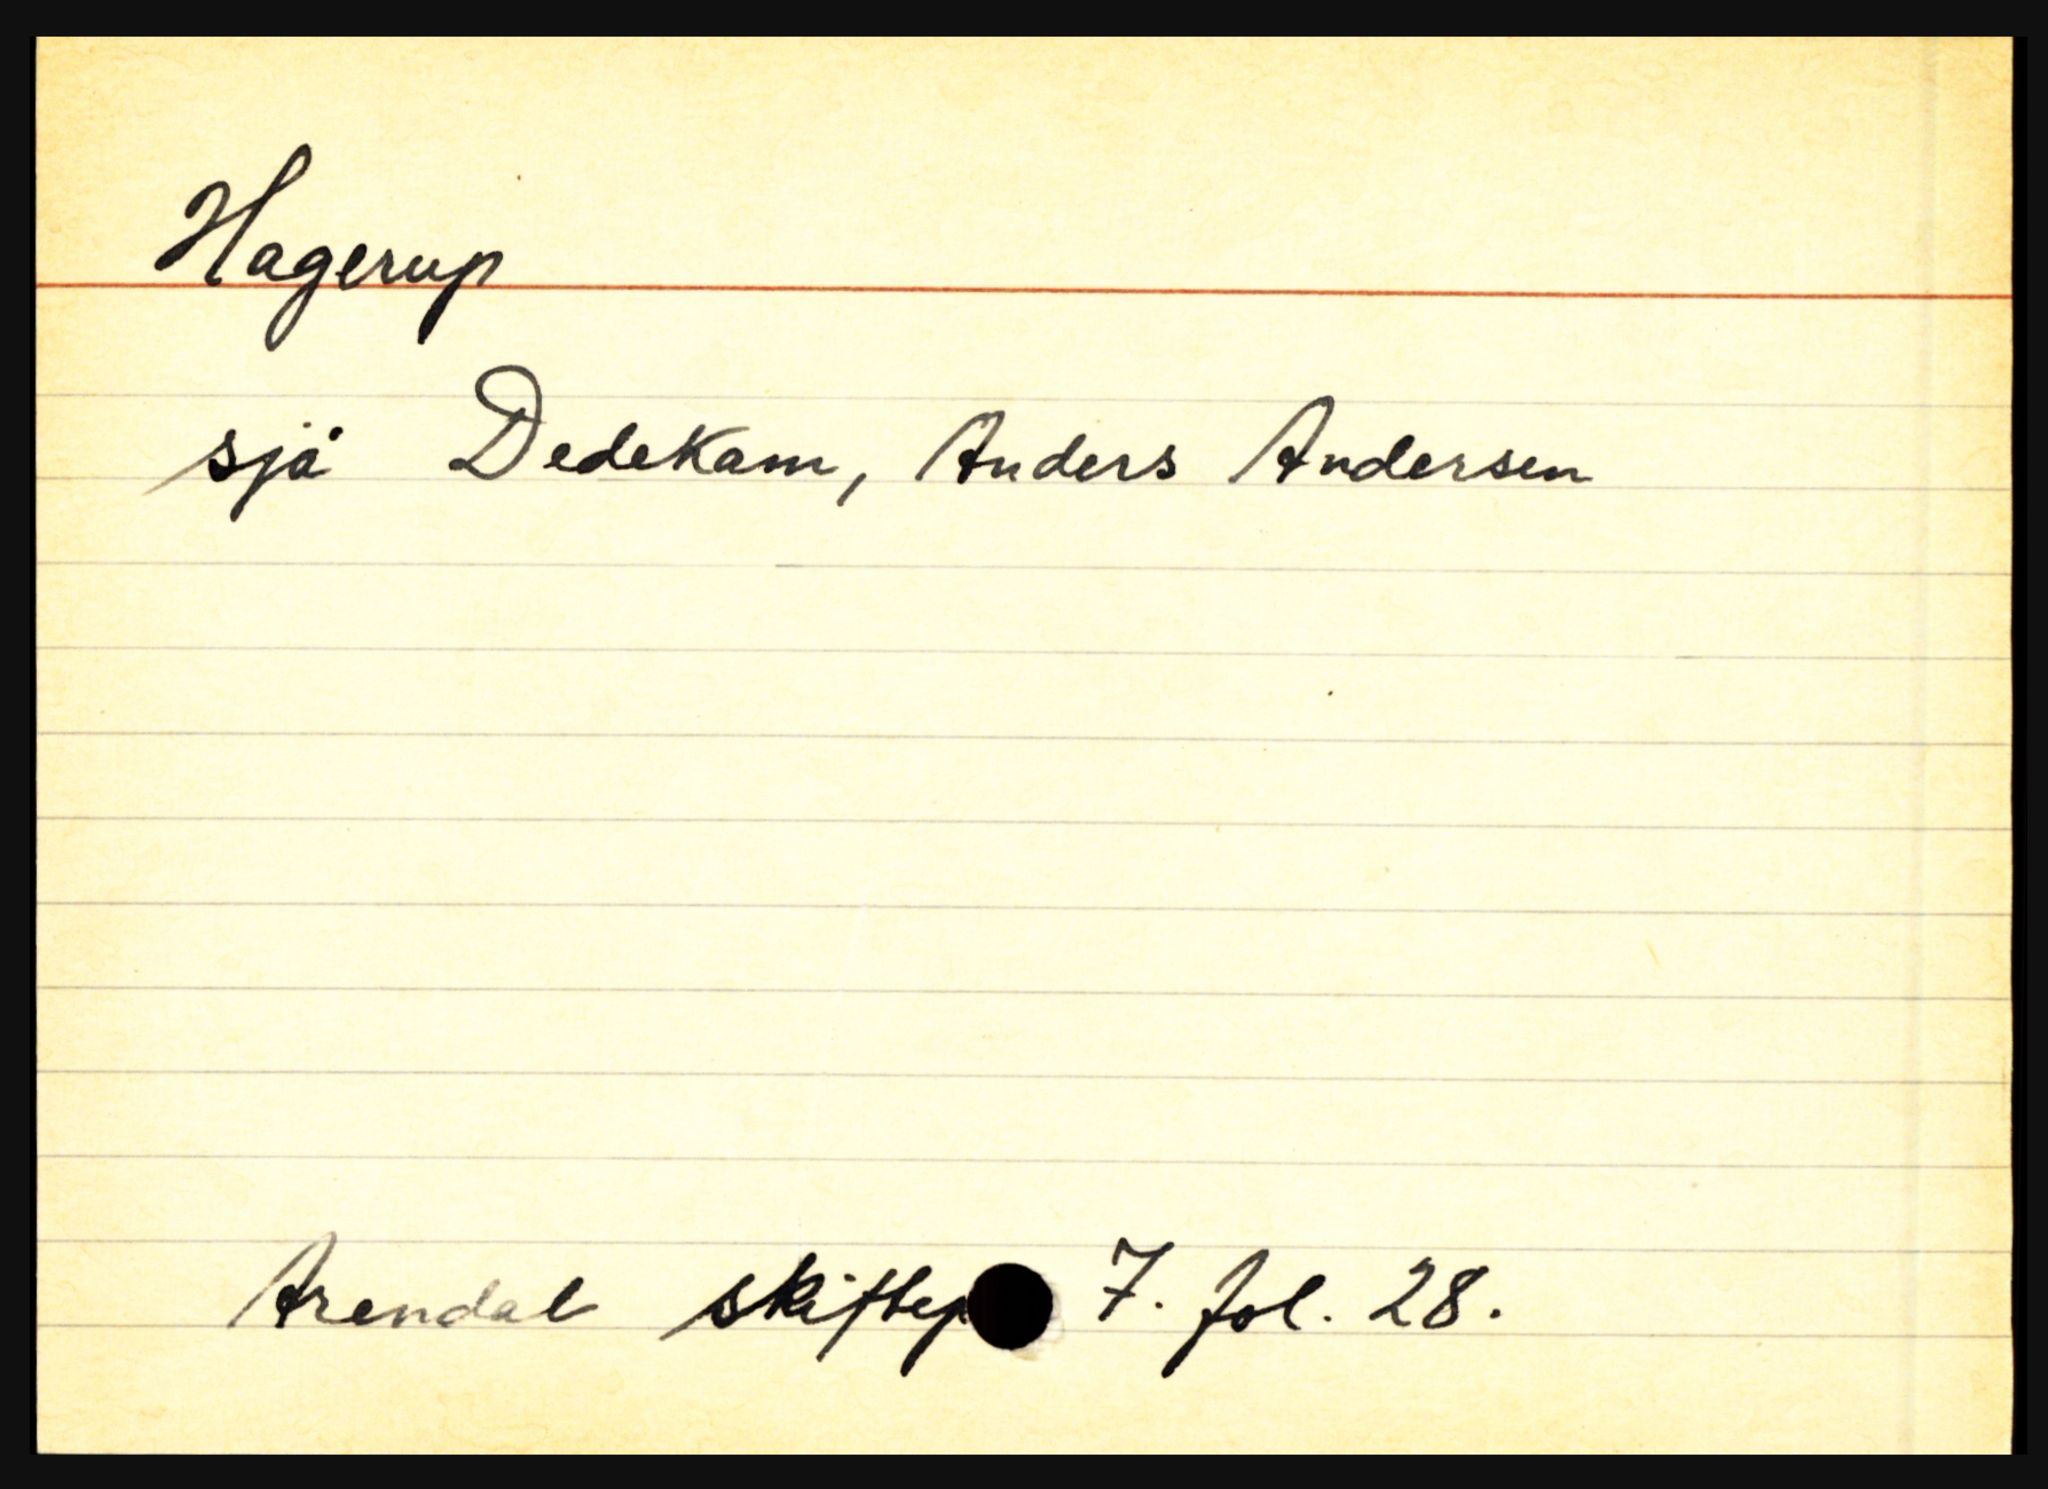 Hagerup
sjå Dedekam, Anders Andersen
Arendal skiftep 7. fol. 28.